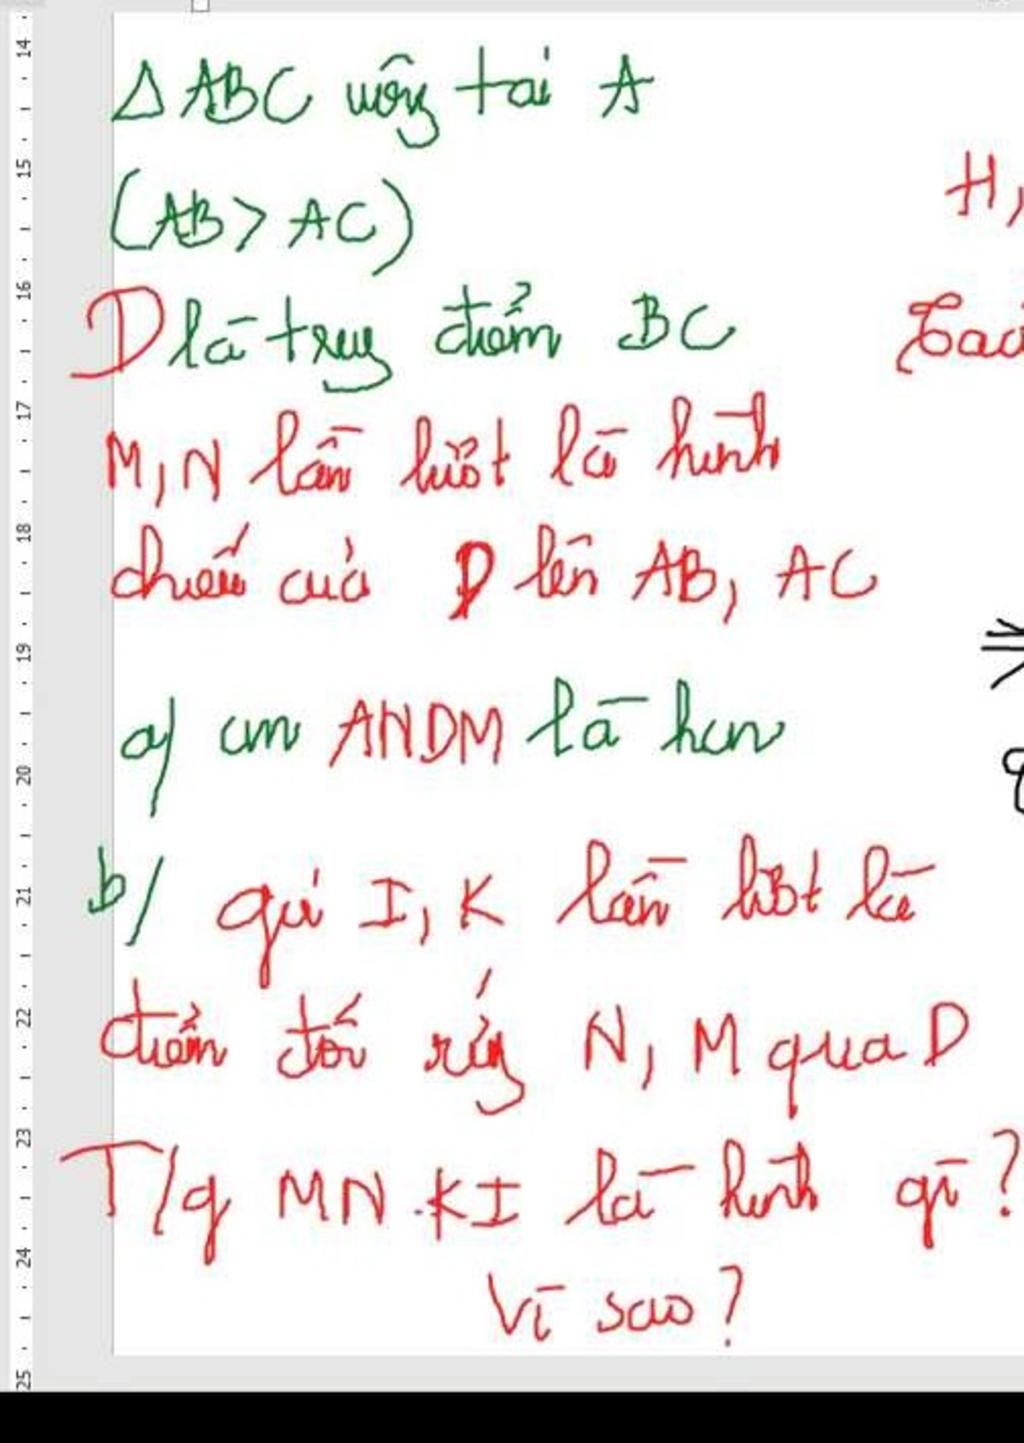 14
15
16
17
18
19
20
21
22
23
24
25
Δ ABC vuông tại A
(AB > AC)
H,
D là trung điểm BC
M, N lần lượt là hình
chiếu của D lên AB, AC
a/ cm ANDM là hcn
b/ gọi I, K lần lượt là
điểm đối xứng N, M qua D
T/g MNKI là hình gì?
Vì sao?